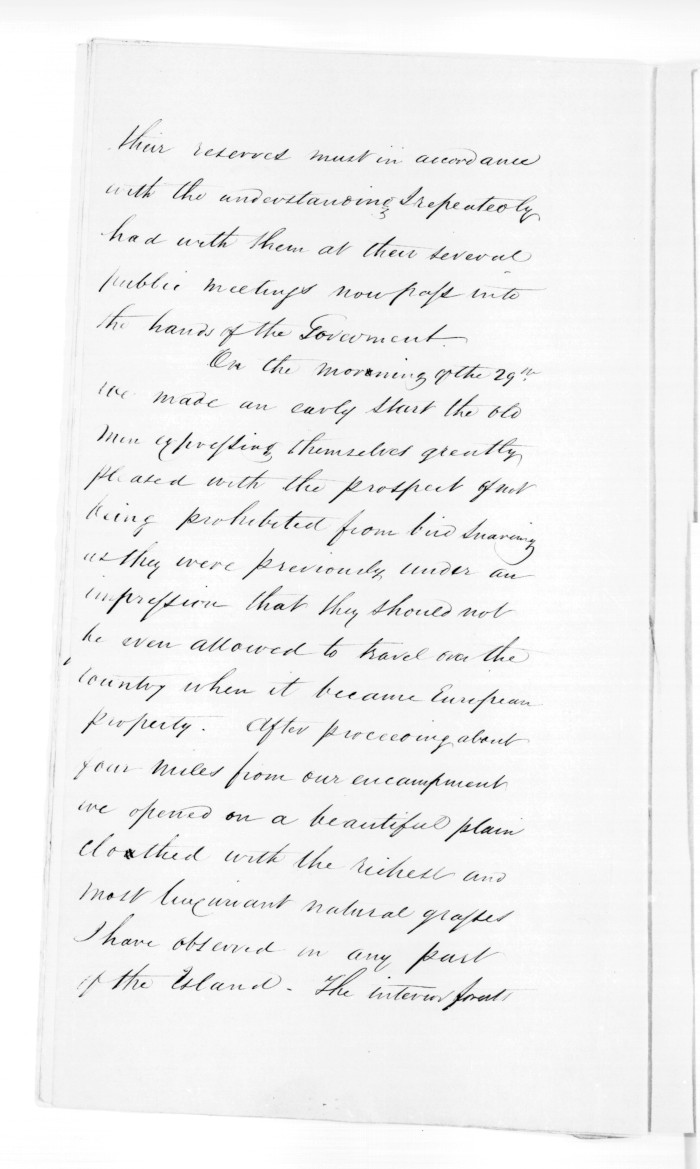 their reserves must in accordance
with the understanding I repeatedly
had with them at their several
public meetings now pass into
the hands of the Goverment.
On the morning of the 29th
we made an early start the old
men expressing themselves greatly
pleased with the prospect of not
being prohibited from bird snaring
as they were previously under an
impression that they should not
be even allowed to travel over the
country when it became European
property. After proceeding about
four miles from our encampment
we opened on a beautiful plain
cloathed with the richest and
most luxuriant natural grasses
I have observed in any part
of the Island. The interior forests